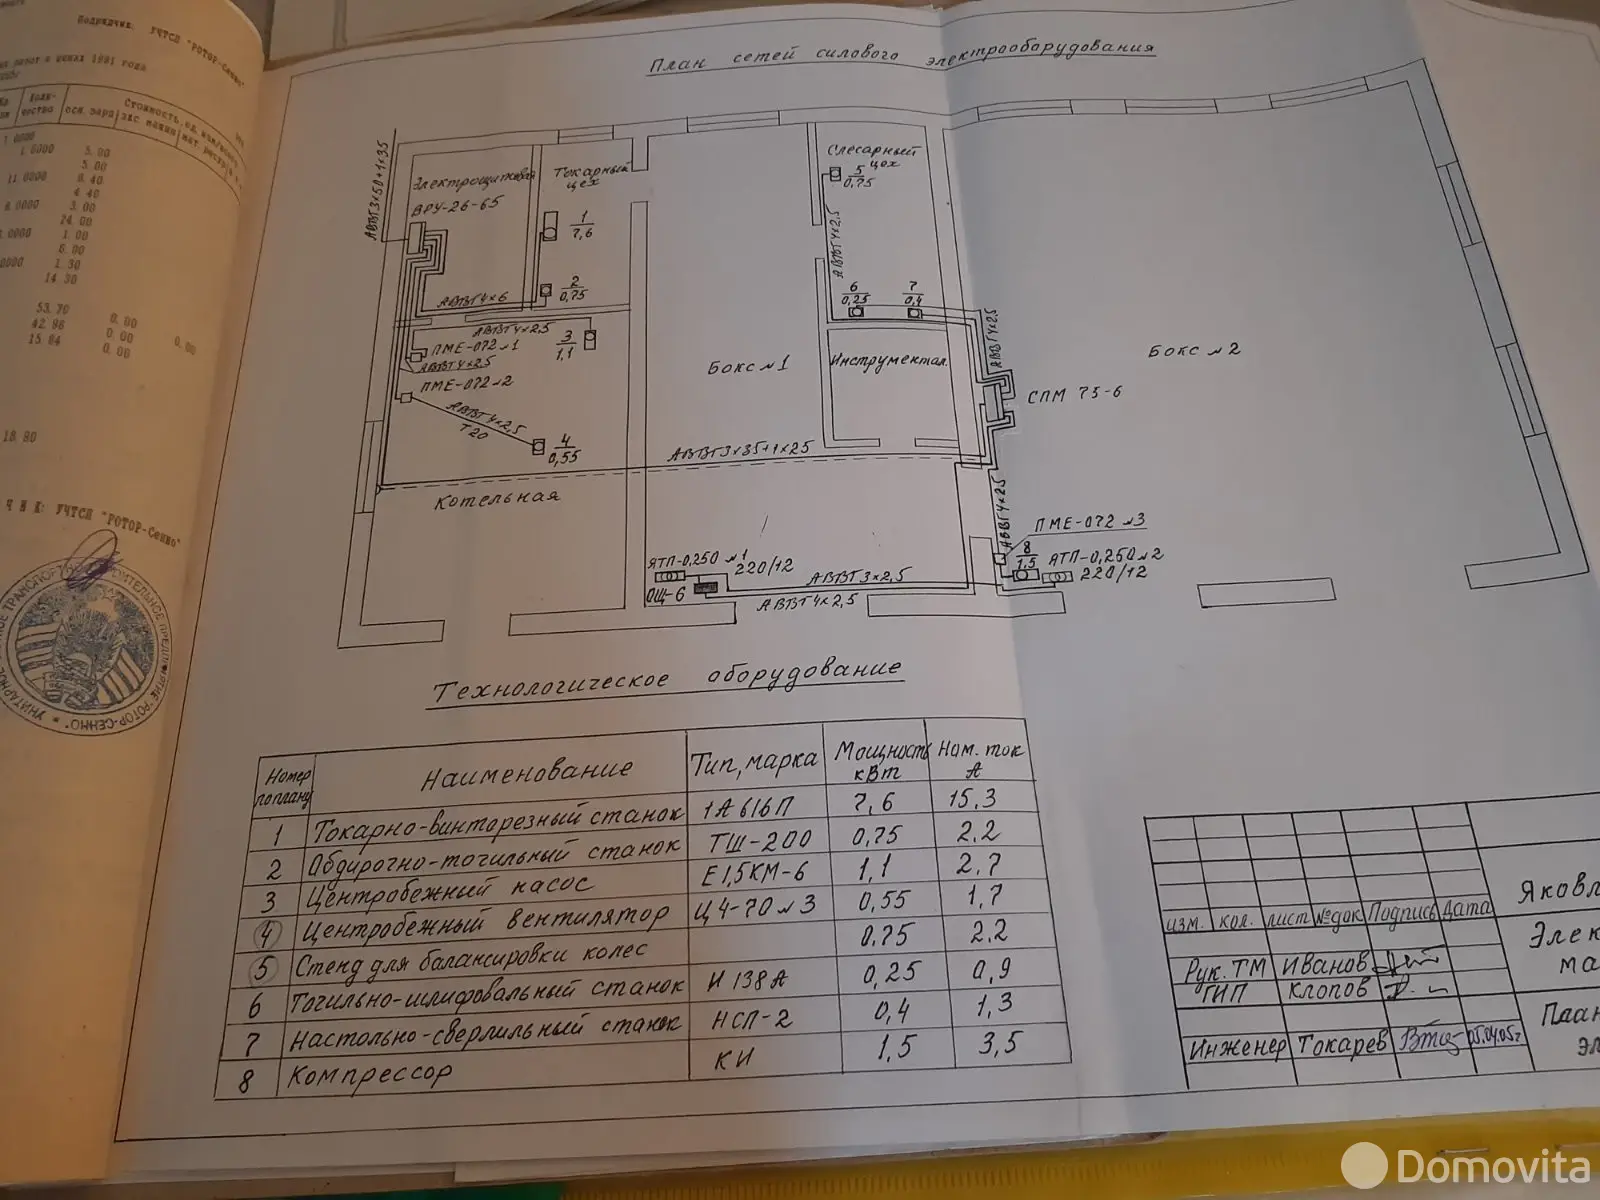 Подрядчик: УЧТСП "РОТОР-Сенно"
работ в ценах 1991 года
Стоимость ед.
1.0000
1.6000 5.00
5.00
11.0000 8.40
4.40
6.0000 3.00
24.00
1.00
6.00
1.30
14.30
53.70 0.00
42.96 0.00 0.00
15.84 0.00
18.80
УЧТСП "РОТОР-Сенно"
План сетей силового электрооборудования
АВВГ3х50+1х35
Электрощитовая
ВРУ-26-65
Токарный
цех
1
7,6
2
0,75
АВВГ4х6
АВВГ4х2,5
ПМЕ-072 №1
3
1,1
АВВГ4х2,5
ПМЕ-072 №2
АВВГ4х2,5
Т20
4
0,55
Котельная
Бокс №1
Слесарный
цех
5
0,75
АВВГ4х2,5
6
0,25
7
0,4
АВВГ4х2,5
Инструментал.
Бокс №2
СПМ 75-6
АВВГ3х35+1х25
АВВГ4х2,5
ПМЕ-072 №3
8
1,5
ЯТП-0,250 №2
220/12
ЯТП-0,250 №1
220/12
ОЩ-6
АВВГ3х2,5
АВВГ4х2,5
Технологическое оборудование
Номер по плану Наименование Тип, марка Мощность кВт Ном. ток А
1 Токарно-винторезный станок 1А616П 7,6 15,3
2 Обдирочно-точильный станок ТШ-200 0,75 2.2
3 Центробежный насос Е1,5КМ-6 1,1 2.7
4 Центробежный вентилятор Ц4-70 №3 0,55 1,7
5 Стенд для балансировки колес 0,75 2.2
6 Точильно-шлифовальный станок И 138А 0,25 0,9
7 Настольно-сверлильный станок НСП-2 0,4 1,3
8 Компрессор КИ 1,5 3,5
изм. кол. лист №док Подпись Дата
Рук. ТМ Иванов
ГИП Клопов
Инженер Токарев 05.04.05г
Яковл
Элек
ма
План
эл
Domovita